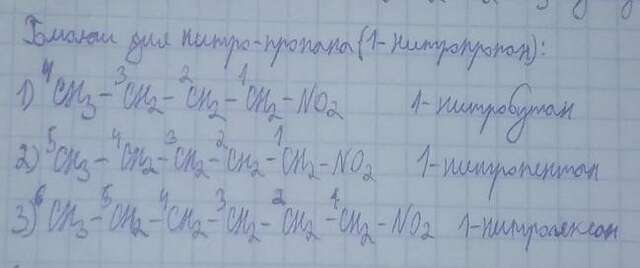 Гомологи для нитро-пропана (1-нитропропан):
1) ⁴CH₃-³CH₂-²CH₂-¹CH₂-NO₂ 1-нитробутан
2) ⁵CH₃-⁴CH₂-³CH₂-²CH₂-¹CH₂-NO₂ 1-нитропентан
3) ⁶CH₃-⁵CH₂-⁴CH₂-³CH₂-²CH₂-¹CH₂-NO₂ 1-нитрогексан